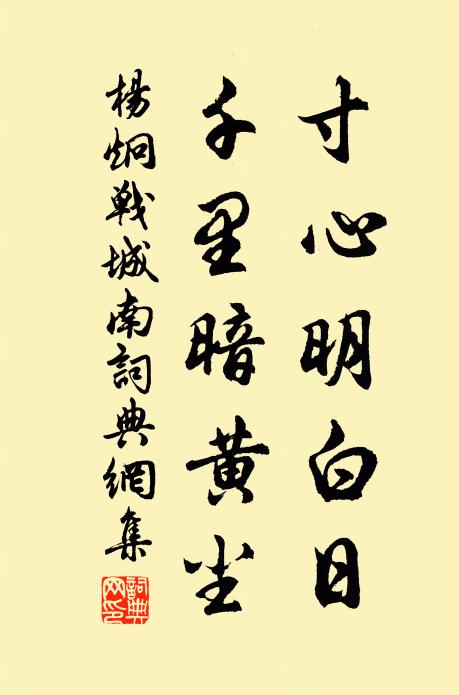 寸心明白日
千里暗黄尘
楊炯戰城南詞典網集
詞典网印